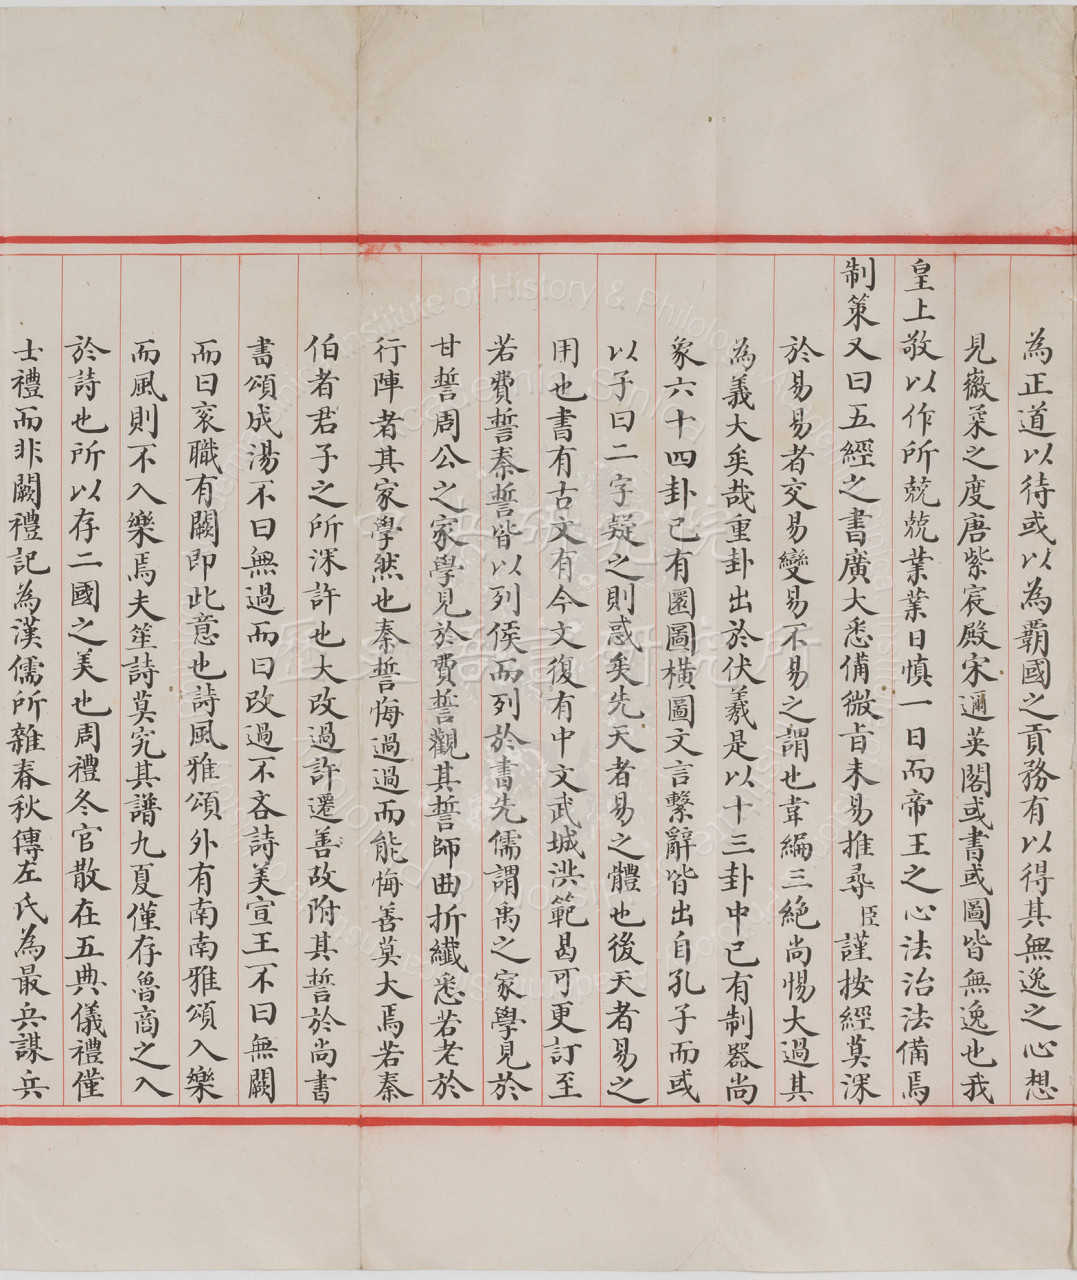 為正道以待或以為覇國之貢務有以得其無逸之心想
見徽柔之度唐紫宸殿宋邇英閣或書或圖皆無逸也我
皇上敬以作所兢兢業業日慎一日而帝王之心法治法備焉
制策又曰五經之書廣大悉備微㫖未易推尋臣謹按經莫深
於易易者交易變易不易之謂也韋編三絶尚惕大過其
為義大矣哉重卦出於伏羲是以十三卦中已有制器尚
象六十四卦已有圜圖橫圖文言繫辭皆出自孔子而或
以子曰二字疑之則惑矣先天者易之體也後天者易之
用也書有古文有今文復有中文武城洪範曷可更訂至
若費誓秦誓皆以列侯而列於書先儒謂禹之家學見於
甘誓周公之家學見於費誓觀其誓師曲折纖悉若老於
行陣者其家學然也秦誓悔過過而能悔善莫大焉若秦
伯者君子之所深許也大改過許遷善故附其誓於尚書
書頌成湯不曰無過而曰改過不吝詩美宣王不曰無闕
而曰袞職有闕即此意也詩風雅頌外有南南雅頌入樂
而風則不入樂焉夫笙詩莫究其譜九夏僅存魯商之入
於詩也所以存二國之美也周禮冬官散在五典儀禮僅
士禮而非闕禮記為漢儒所雜春秋傳左氏為最兵謀兵